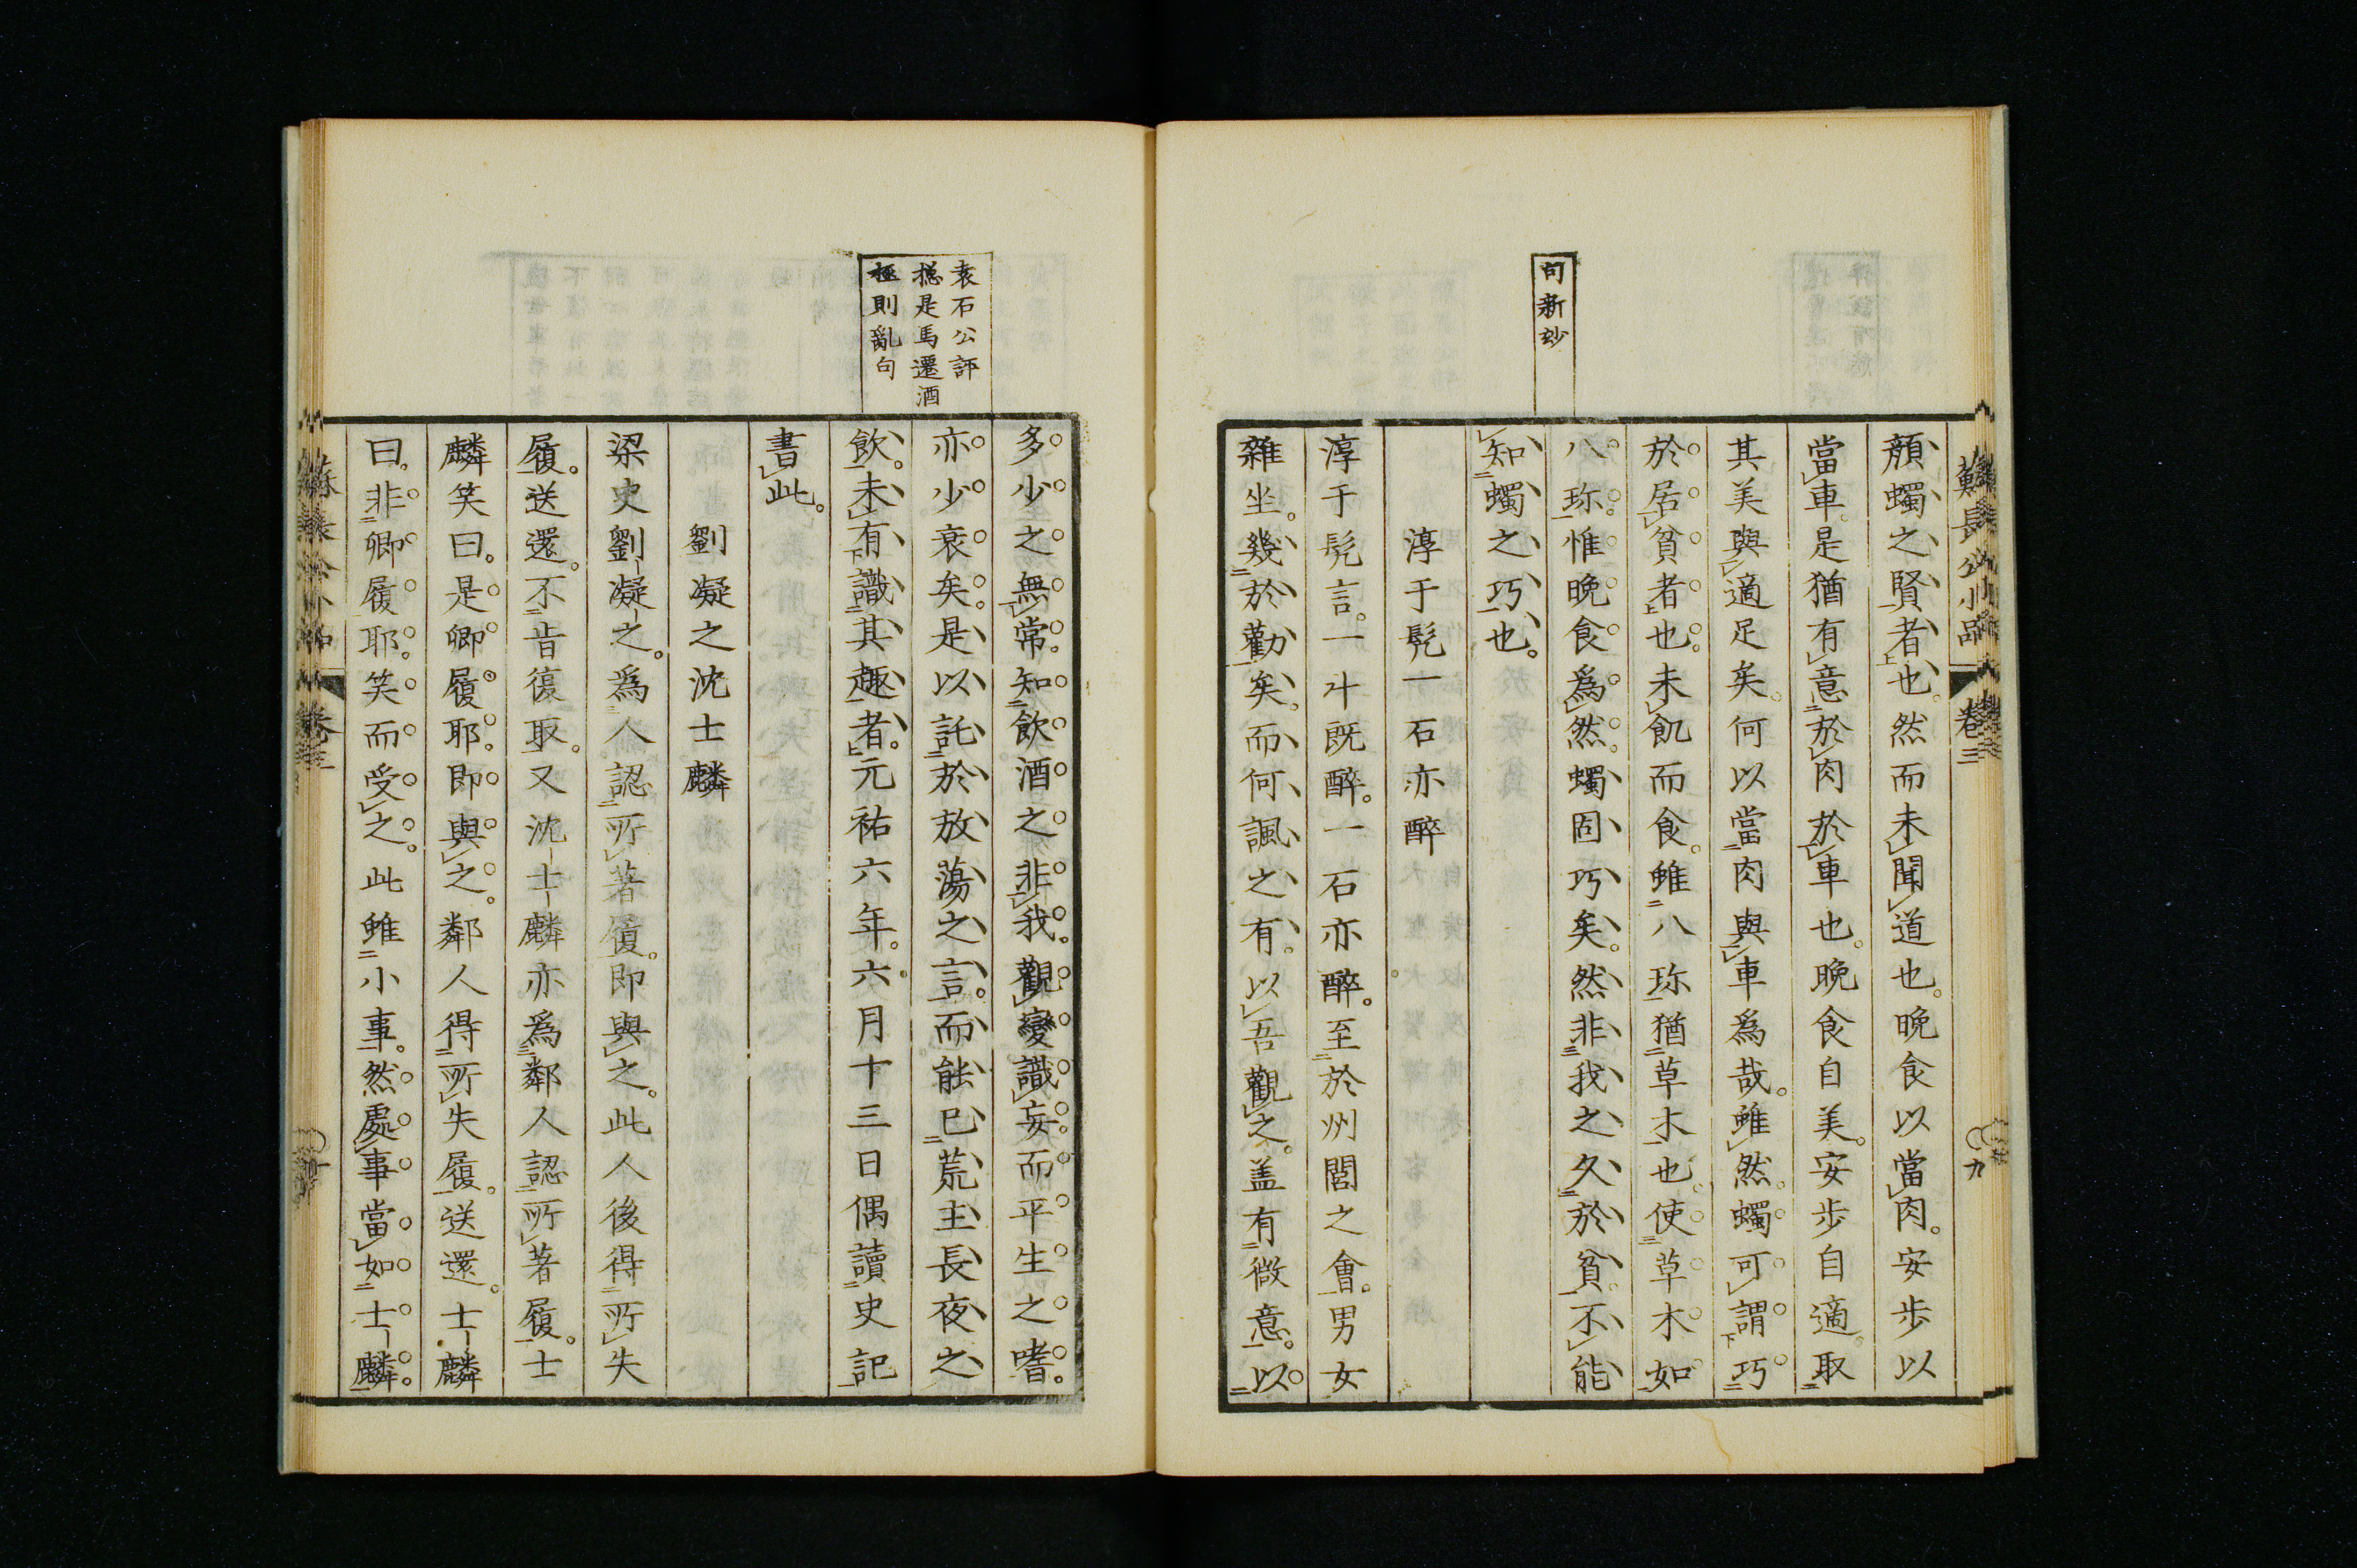 蘇長公小品 卷三 九
句新玅
顏蠋之賢者也。然而未聞道也。晚食以當肉。安步以
當車。是猶有意於肉於車也。晚食自美。安步自適。取
其美與適足矣。何以當肉與車爲哉。雖然。蠋可謂巧
於居貧者也。未飢而食。雖八珎猶草木也。使草木如
八珎。惟晚食爲然。蠋固巧矣。然非我之久於貧。不能
知蠋之巧也。
淳于髠一石亦醉
淳于髠言。一斗既醉。一石亦醉。至於州閭之會。男女
雜坐。幾於勸矣。而何諷之有。以吾觀之。盖有微意。以
袁石公評
摠是馬遷酒
極則亂句
多少之無常。知飲酒之非我。觀變識妄。而平生之嗜。
亦少衰矣。是以託於放蕩之言。而能已荒主長夜之
飲。未有識其趣者。元祐六年。六月十三日偶讀史記
書此。
劉凝之沈士麟
梁史劉凝之。爲人認所著履。即與之。此人後得所失
履。送還。不肯復取。又沈士麟亦爲鄰人認所著履。士
麟笑曰。是卿履耶。即與之。鄰人得所失履。送還。士麟
曰。非卿履耶。笑而受之。此雖小事。然處事當如士麟。